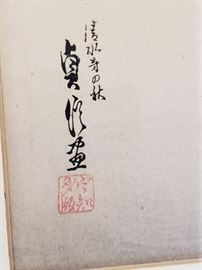 清水寺の秋
貞信画